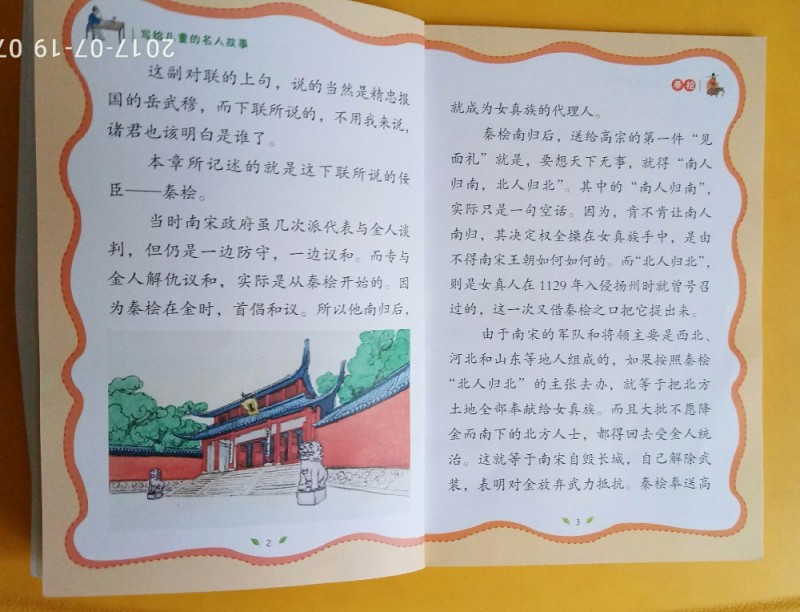 2017-07-19 07
写给儿童的名人故事
这副对联的上句，说的当然是精忠报
国的岳武穆，而下联所说的，不用我来说，
诸君也该明白是谁了。
本章所记述的就是这下联所说的佞
臣——秦桧。
当时南宋政府虽几次派代表与金人谈
判，但仍是一边防守，一边议和。而专与
金人解仇议和，实际是从秦桧开始的。因
为秦桧在金时，首倡和议。所以他南归后，
2
秦桧
就成为女真族的代理人。
秦桧南归后，送给高宗的第一件“见
面礼”就是，要想天下无事，就得“南人
归南，北人归北”。其中的“南人归南”，
实际只是一句空话。因为，肯不肯让南人
南归，其决定权全操在女真族手中，是由
不得南宋王朝如何如何的。而“北人归北”，
则是女真人在1129年入侵扬州时就曾号召
过的，这一次又借秦桧之口把它提出来。
由于南宋的军队和将领主要是西北、
河北和山东等地人组成的，如果按照秦桧
“北人归北”的主张去办，就等于把北方
土地全部奉献给女真族。而且大批不愿降
金而南下的北方人士，都得回去受金人统
治。这就等于南宋自毁长城，自己解除武
装，表明对金放弃武力抵抗。秦桧奉送高
3